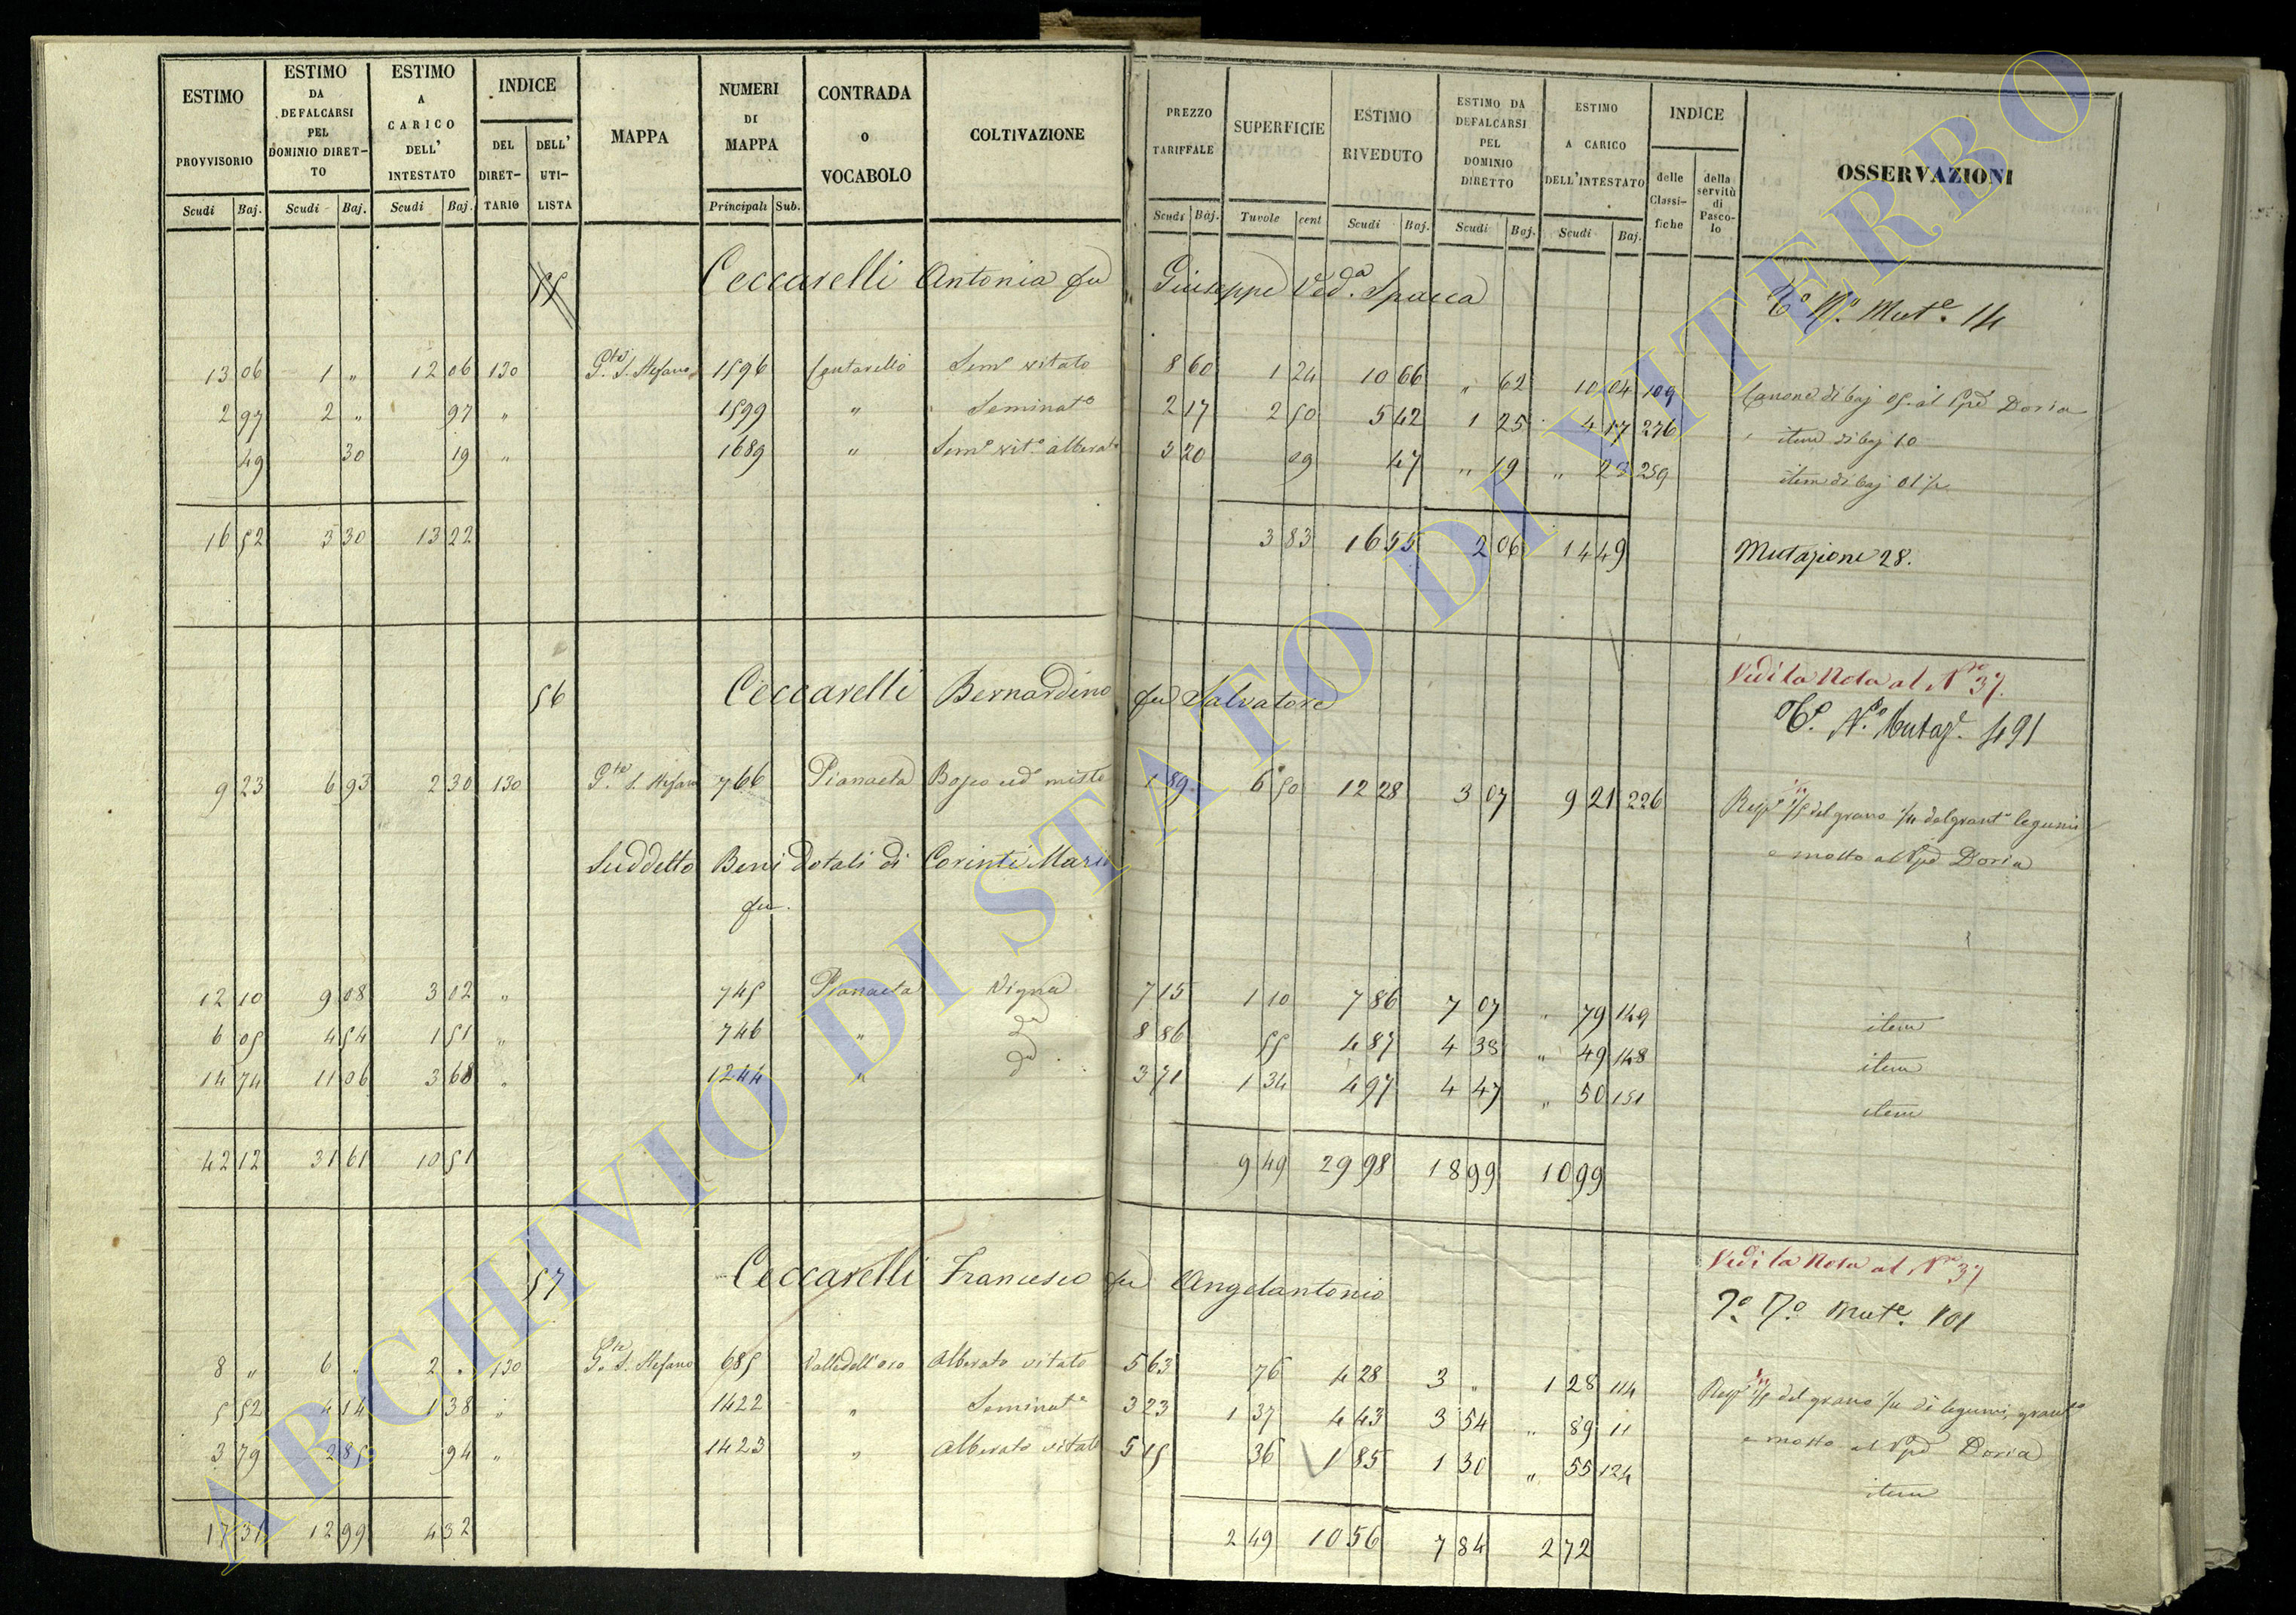 ESTIMO PROVVISORIO Scudi Baj. | ESTIMO DA DEFALCARSI PEL DOMINIO DIRETTO Scudi Baj. | ESTIMO A CARICO DELL' INTESTATO Scudi Baj. | INDICE DEL DIRETTARIO | DELL' UTILISTA | MAPPA | NUMERI DI MAPPA Principali Sub. | CONTRADA O VOCABOLO | COLTIVAZIONE | PREZZO TARIFFALE Scudi Baj. | SUPERFICIE Tavole cent | ESTIMO RIVEDUTO Scudi Baj. | ESTIMO DA DEFALCARSI PEL DOMINIO DIRETTO Scudi Baj. | ESTIMO A CARICO DELL'INTESTATO Scudi Baj. | INDICE delle Classifiche | della servitù di Pascolo | OSSERVAZIONI
55 Ceccarelli Antonia fu Giuseppe Ved.a Spacca
Mut.e 14
13 06 1 " 12 06 130 P.te S. Stefano 1596 Sem.o vitato 8 60 1 24 10 66 " 62 10 04 109 Canone di baj 05. al Doria
2 97 2 " 97 " 1599 " Seminat.o 2 17 2 50 5 42 1 25 4 17 276 item di baj 10
49 30 19 " 1689 " Sem.o vit.o alberato 5 20 09 47 " 19 " 28 259 item di baj 01 1/2
16 52 3 30 13 22 3 83 16 55 2 06 14 49 Mutazione 28.
56 Ceccarelli Bernardino fu Salvatore
Vedi la Nota al N.o 37.
Mutaz.e 491
9 23 6 93 2 30 130 P.te S. Stefano 766 Pianaeta Bosco ced. misto 1 89 6 50 12 28 3 07 9 21 226 1/5 del grano 1/4 del grant.o legumi
e mosto al Doria
Suddetto Beni Dotali di Corinti Maria
fu.
12 10 9 08 3 02 " 745 Pianaeta Vigna 7 15 1 10 7 86 7 07 " 79 149 item
6 05 4 54 1 51 " 746 " 8 86 55 4 87 4 38 " 49 148 item
14 74 11 06 3 68 " 1244 " 3 71 1 34 4 97 4 47 " 50 151 item
42 12 31 61 10 51 9 49 29 98 18 99 10 99
57 Ceccarelli Francesco fu Angelantonio
Vedi la Nota al N.o 37
Mut.e 101
8 " 6 " 2 " 130 P.te S. Stefano 685 Valledell'oro Alberato vitato 5 63 76 4 28 3 " 1 28 114 1/5 del grano 1/4 di legumi, grant.o
5 52 4 14 1 38 " 1422 " Seminat.o 3 23 1 37 4 43 3 54 " 89 11 e mosto al Doria
3 79 2 85 94 " 1423 " Alberato vitato 5 15 36 1 85 1 30 " 55 124 item
17 31 12 99 4 32 2 49 10 56 7 84 2 72
ARCHIVIO DI STATO DI VITERBO